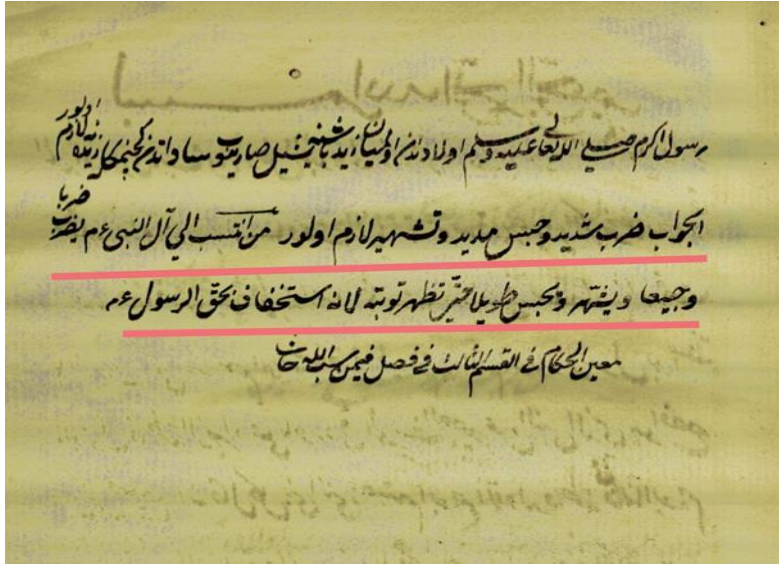 رسول اكرم صلى الله تعالى عليه وسلم اولادندن اولميان زيد باشنه يشيل صارينوب ساداتدن كچنمكله زيده نه لازم اولور
الجواب ضرب شديد وحبس مديد وتشهير لازم اولور من انتسب الي آل النبى ع م يضرب ضربا
وجيعا ويشهر ويحبس طويلا حتى تظهر توبته لانه استخفاف بحق الرسول ع م
معين الحكام فى القسم الثالث فى فصل فيمن سب الله